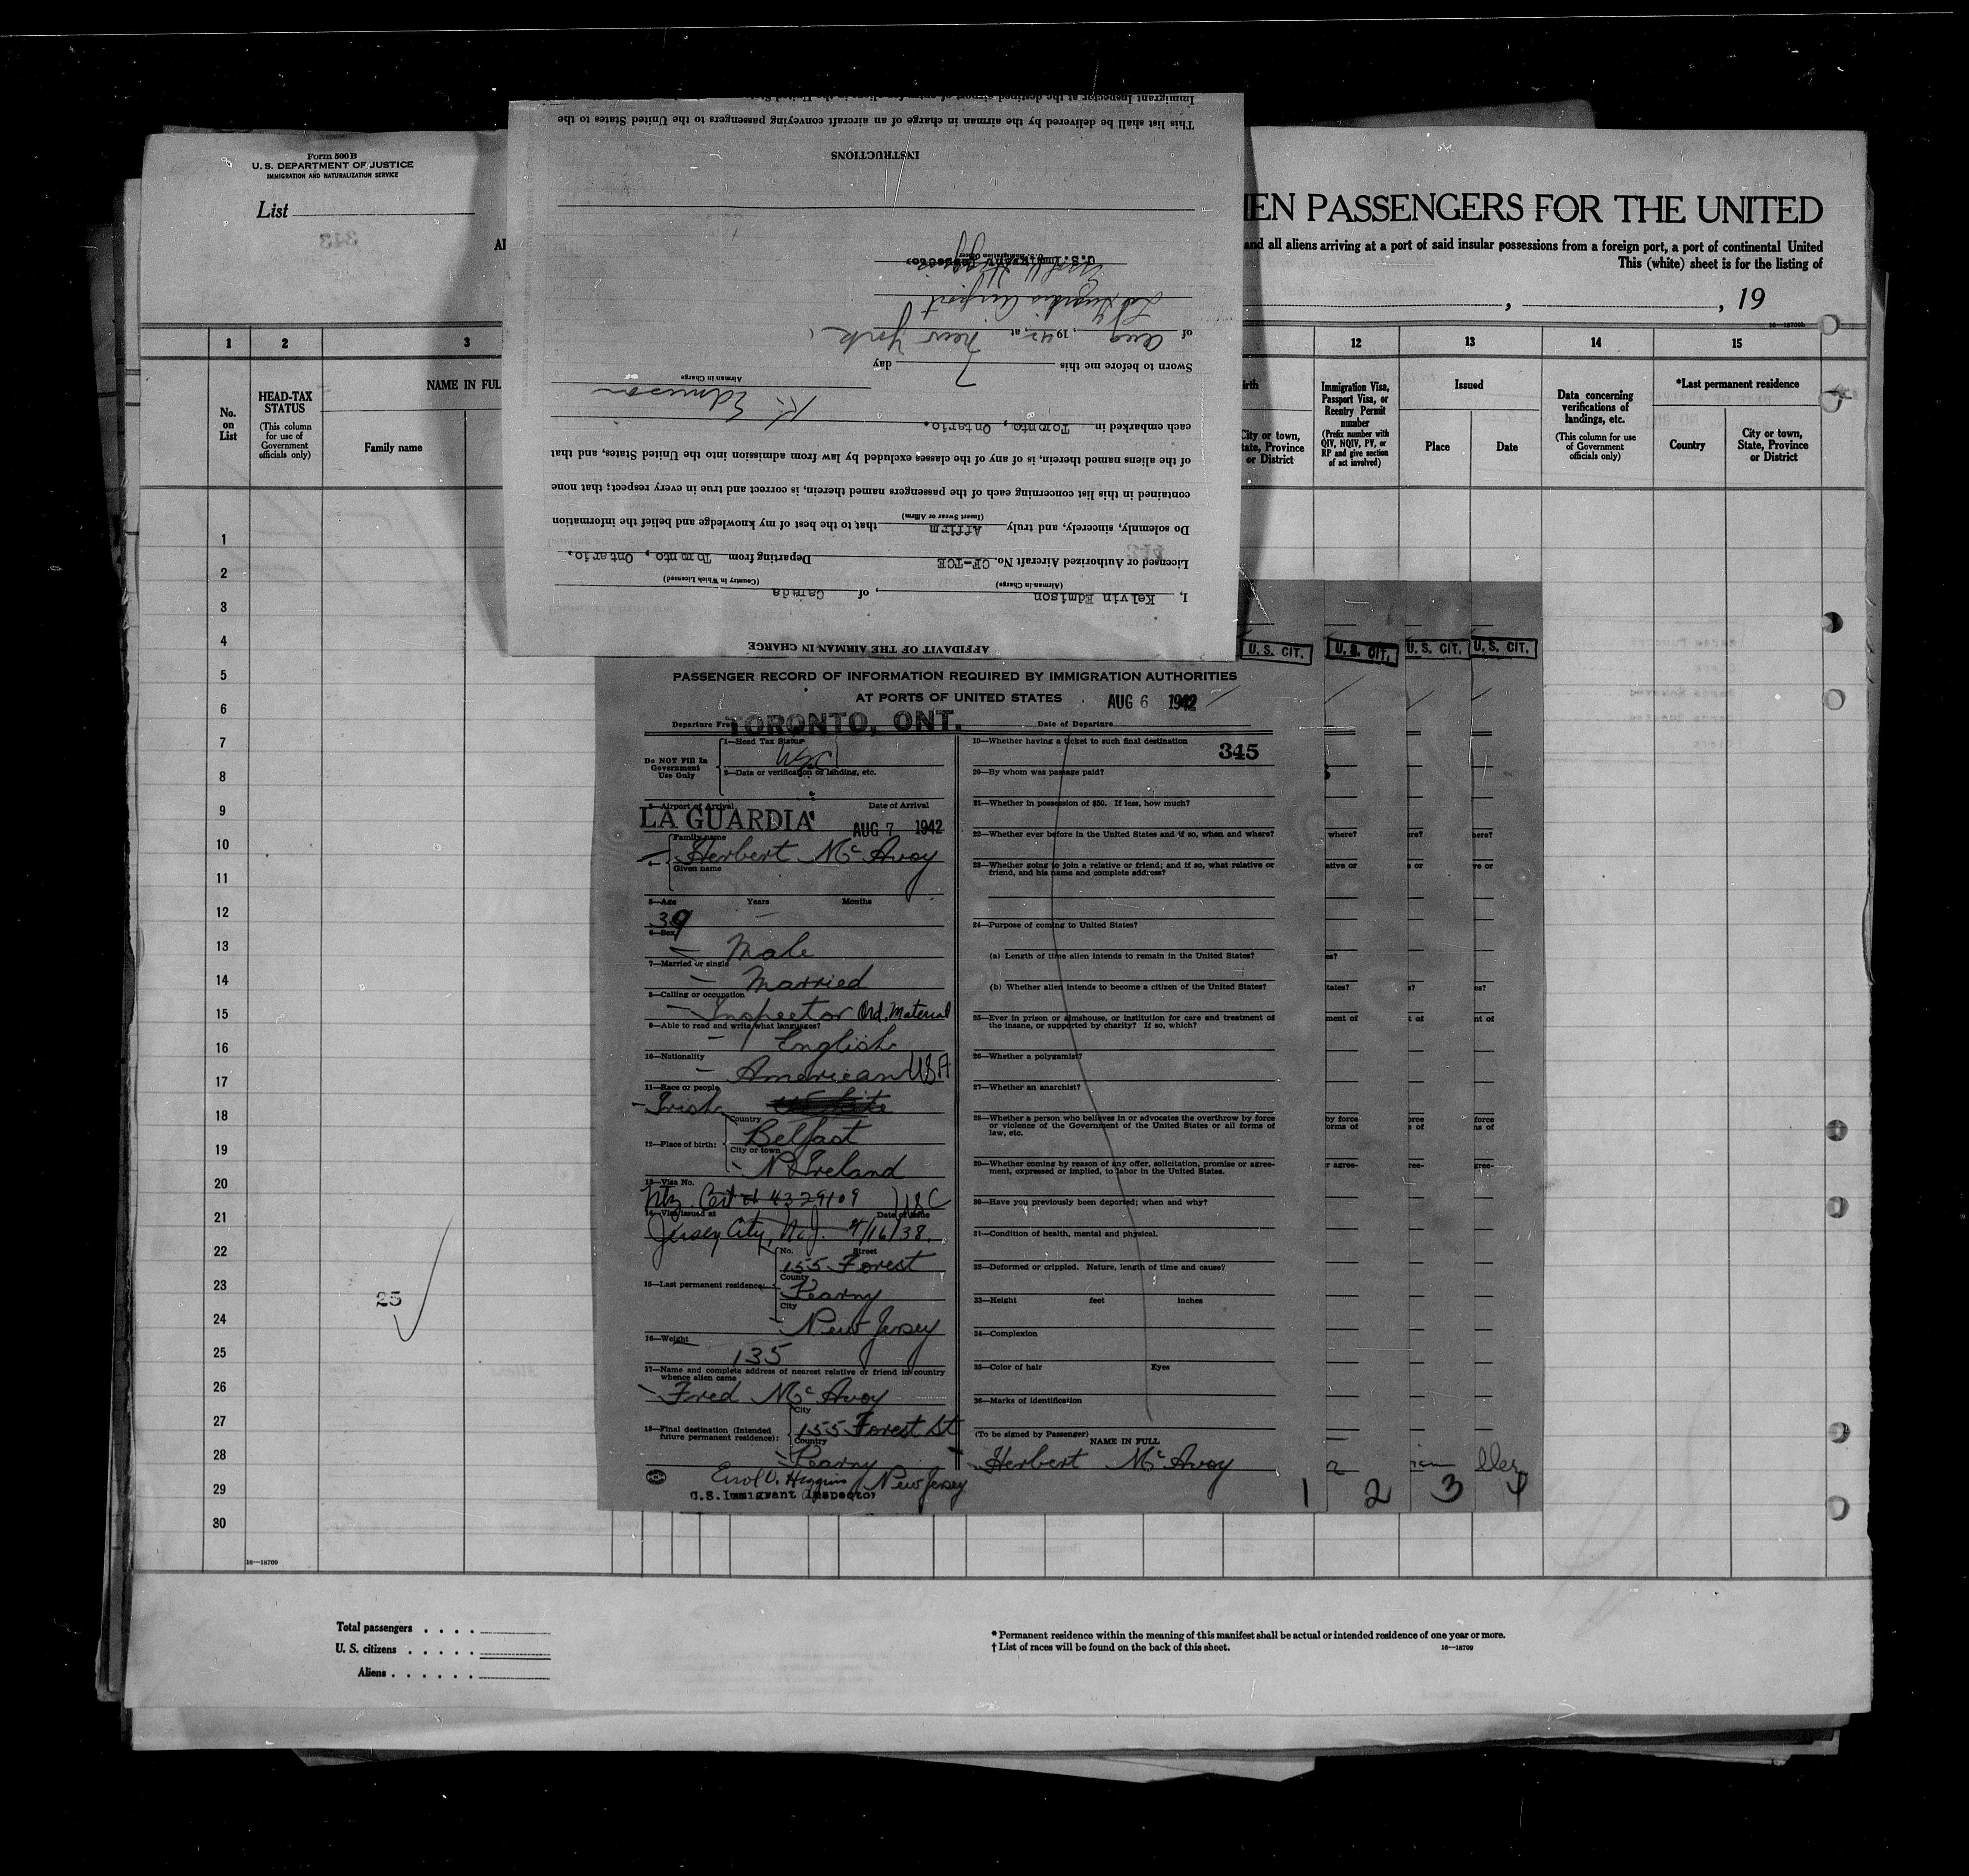 Form 500 B
U. S. DEPARTMENT OF JUSTICE
IMMIGRATION AND NATURALIZATION SERVICE
List
IEN PASSENGERS FOR THE UNITED
and all aliens arriving at a port of said insular possessions from a foreign port, a port of continental United
This (white) sheet is for the listing of
, , 19
16—18709b
1 2 3 12 13 14 15
No. on List
HEAD-TAX STATUS
(This column for use of Government officials only)
NAME IN FUL
Family name
City or town, State, Province or District
Immigration Visa, Passport Visa, or Reentry Permit number
(Prefix number with QIV, NQIV, PV, or RP and give section of act involved)
Issued
Place
Date
Data concerning verifications of landings, etc.
(This column for use of Government officials only)
*Last permanent residence
Country
City or town, State, Province or District
1
2
3
4
5
6
7
8
9
10
11
12
13
14
15
16
17
18
19
20
21
22
23
24
25
26
27
28
29
30
25
16—18709
Total passengers . . . .
U. S. citizens . . . . .
Aliens . . . . . .
* Permanent residence within the meaning of this manifest shall be actual or intended residence of one year or more.
† List of races will be found on the back of this sheet.
16—18709
AFFIDAVIT OF THE AIRMAN IN CHARGE
I, Kelvin Edmison, of Canada
(Airman in Charge) (Country in Which Licensed)
Licensed or Authorized Aircraft No. CF-TCE Departing from Toronto, Ontario.
Do solemnly, sincerely, and truly Affirm that to the best of my knowledge and belief the information
(Insert Swear or Affirm)
contained in this list concerning each of the passengers named therein, is correct and true in every respect; that none
of the aliens named therein, is of any of the classes excluded by law from admission into the United States, and that
each embarked in Toronto, Ontario.
K. Edmison
Airman in Charge
Sworn to before me this 7 day
of Aug, 1942, at New York,
La Guardia Airport
U.S. Immigrant Inspector
U. S. Immigration Officer
INSTRUCTIONS
This list shall be delivered by the airman in charge of an aircraft conveying passengers to the United States to the
PASSENGER RECORD OF INFORMATION REQUIRED BY IMMIGRATION AUTHORITIES
AT PORTS OF UNITED STATES AUG 6 1942
Departure From TORONTO, ONT. Date of Departure
U. S. CIT. U. S. CIT. U. S. CIT. U. S. CIT.
Do NOT Fill In Government Use Only
1—Head Tax Status
USC
2—Data or verification of landing, etc.
3—Airport of Arrival Date of Arrival
LA GUARDIA AUG 7 1942
Family name
4— Herbert McAvoy
Given name
5—Age Years Months
39
6—Sex
Male
7—Married or single
Married
8—Calling or occupation
Inspector Ord. Material
9—Able to read and write what languages?
English
10—Nationality
American USA
11—Race or people
Irish
12—Place of birth:
Country
Belfast
City or town
N Ireland
13—Visa No.
Ntz Cert # 4329109 USC
14—Visa issued at Date of Issue
Jersey City, N.J. 4/16/38.
15—Last permanent residence:
No. Street
155 Forest
County
Kearny
City
New Jersey
16—Weight
135
17—Name and complete address of nearest relative or friend in country whence alien came
Fred McAvoy
18—Final destination (Intended future permanent residence):
City
155 Forest St
Country
Kearny
New Jersey
Errol D. Higgins
U.S. Immigrant Inspector
19—Whether having a ticket to such final destination
345
20—By whom was passage paid?
21—Whether in possession of $50. If less, how much?
22—Whether ever before in the United States and if so, when and where?
23—Whether going to join a relative or friend; and if so, what relative or
friend, and his name and complete address?
24—Purpose of coming to United States?
(a) Length of time alien intends to remain in the United States?
(b) Whether alien intends to become a citizen of the United States?
25—Ever in prison or almshouse, or institution for care and treatment of
the insane, or supported by charity? If so, which?
26—Whether a polygamist?
27—Whether an anarchist?
28—Whether a person who believes in or advocates the overthrow by force
or violence of the Government of the United States or all forms of
law, etc.
29—Whether coming by reason of any offer, solicitation, promise or agree-
ment, expressed or implied, to labor in the United States.
30—Have you previously been deported; when and why?
31—Condition of health, mental and physical.
32—Deformed or crippled. Nature, length of time and cause?
33—Height feet inches
34—Complexion
35—Color of hair Eyes
36—Marks of identification
(To be signed by Passenger)
NAME IN FULL
Herbert McAvoy
1 2 3 4